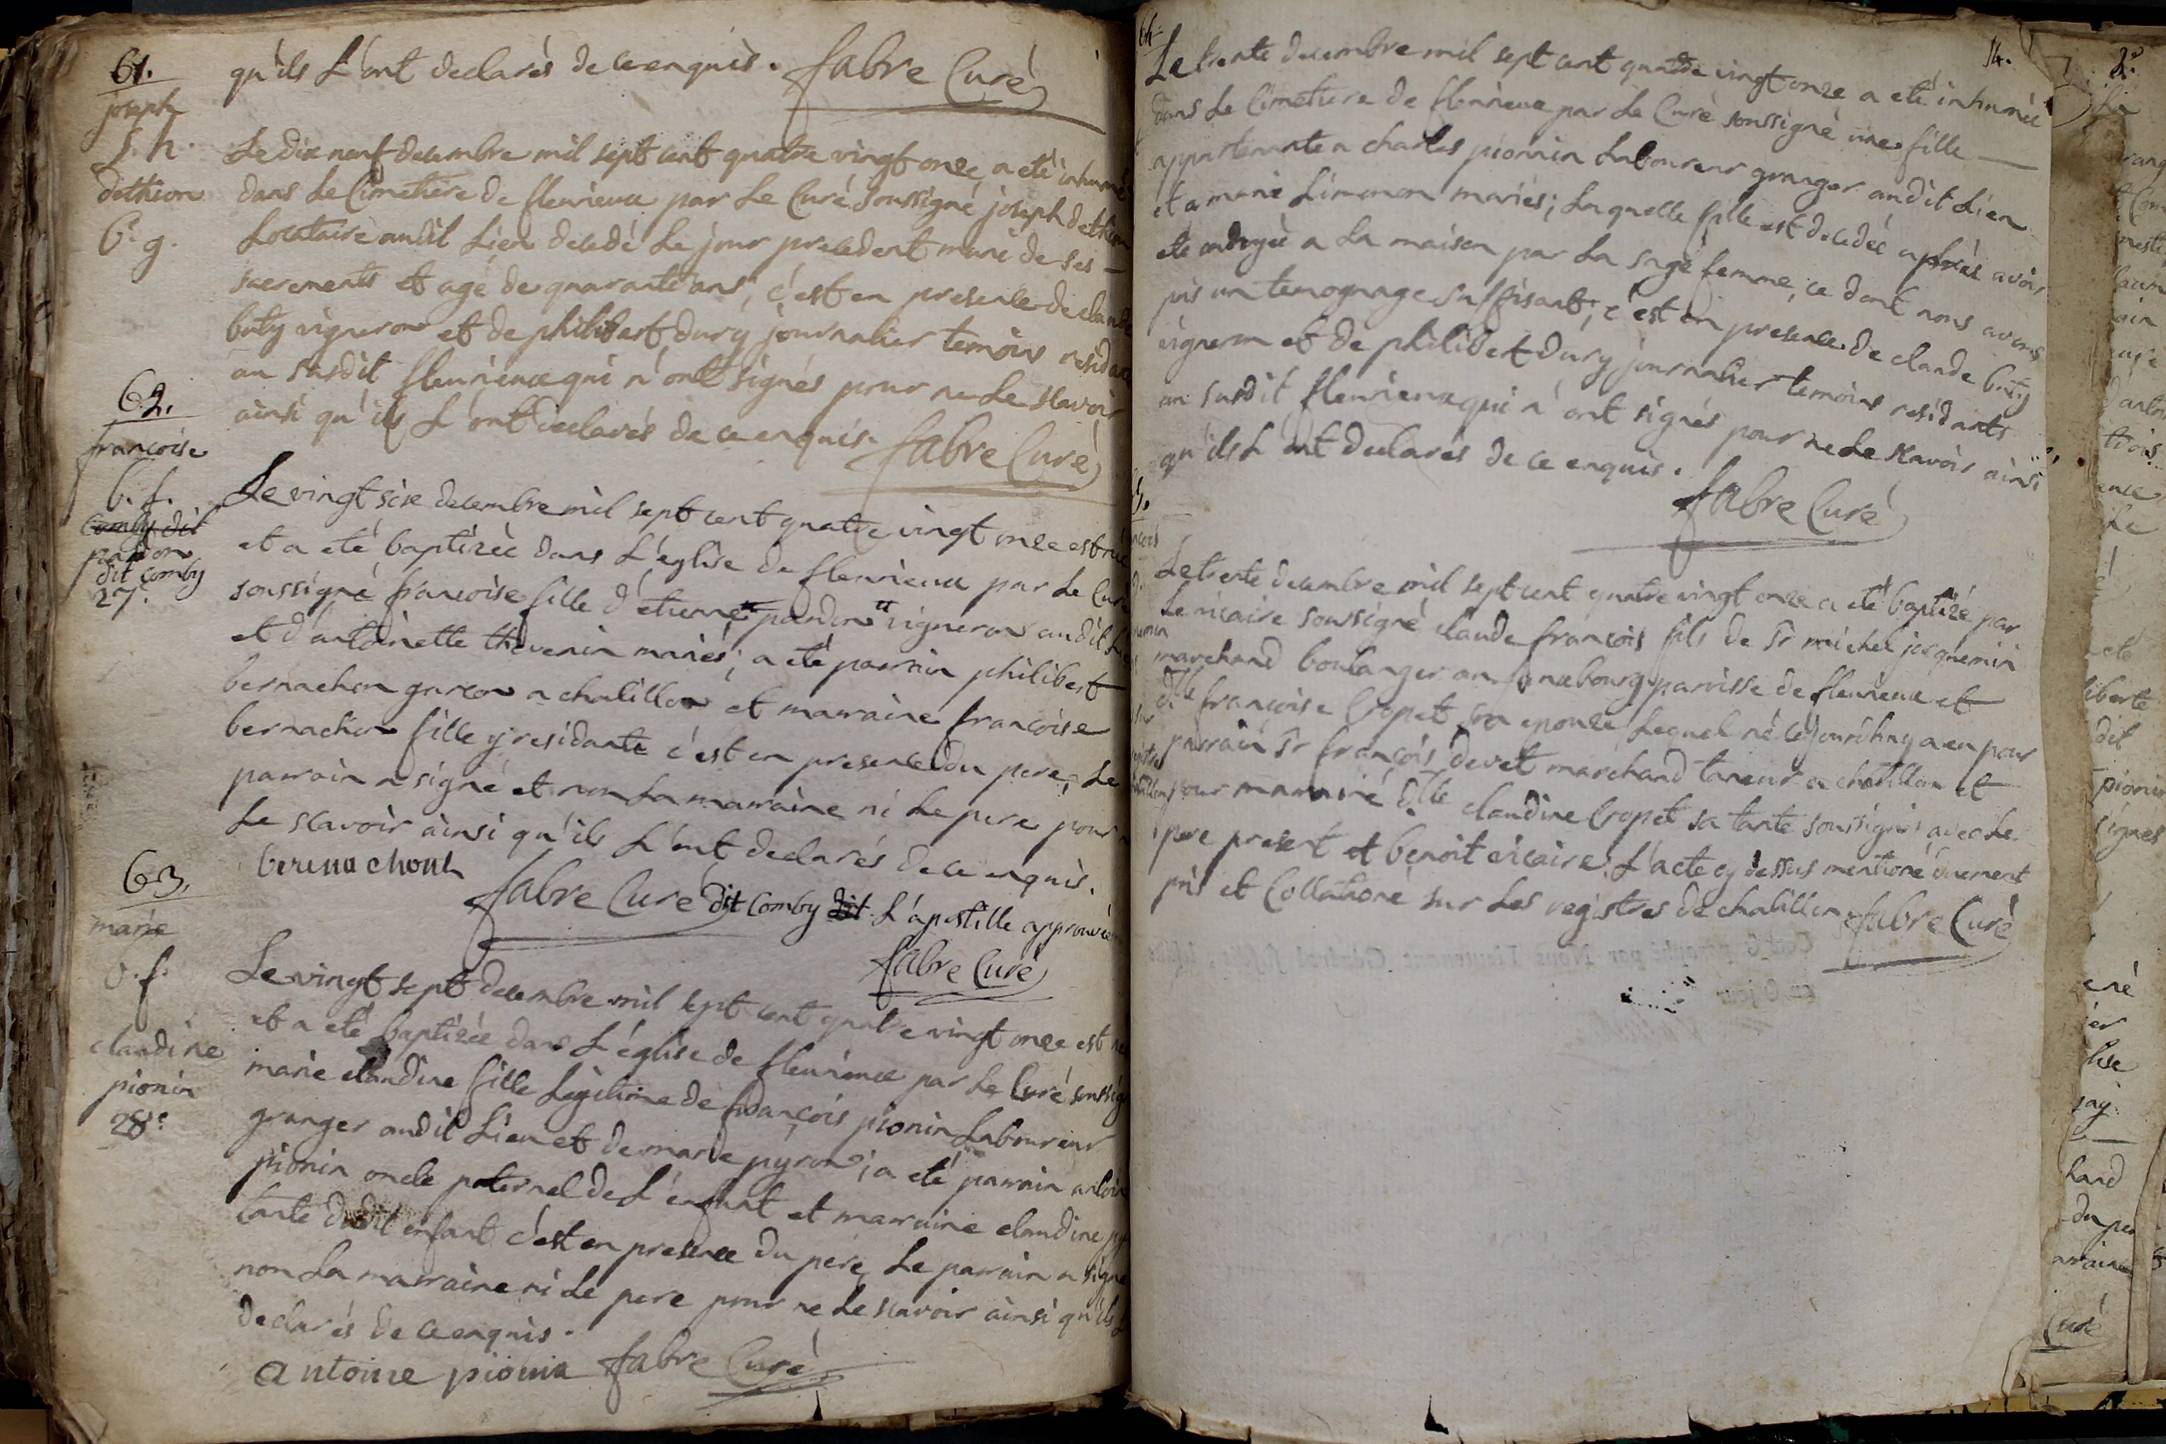 61.
joseph
s. h.
dethion
6e. g.
qu'ils L'ont declarés de ce enquis. fabre Curé
Le dix neuf decembre mil sept cent quatre vingt onze a eté inhumé
dans Le Cimetiere de fleurieux par Le Curé soussigné joseph dethion
Locataire audit Lieu decedé Le jour precedent muni de ses
sacrements et agé de quarante ans, c'est en presence de claude
buty vigneron et de philibert dury journalier temoins residants
au susdit fleurieux qui n'ont signés pour ne Le scavoir
ainsi qu'ils L'ont declarés de ce enquis. fabre Curé
62.
francoise
b. f.
comby dit
pardon
dit comby
27.
Le vingt sixe decembre mil sept cent quatre vingt onze est née
et a eté baptizée dans L'église de fleurieux par Le Curé
soussigné francoise fille d'etienne pardon vigneron audit Lieu
et d'antoinette thevenin mariés; a eté parrain philibert
bernachon garcon a chatillon et marraine francoise
bernachon fille y residante c'est en presence du pere, Le
parrain a signé et non La marraine ni Le pere pour ne
Le scavoir ainsi qu'ils L'ont declarés de ce enquis.
bernachont
fabre Curé dit Comby dit L'apostille approuvée
fabre Curé
63.
marie
b. f.
claudine
pionin
28e
Le vingt sept decembre mil sept cent quatre vingt onze est née
et a eté baptizée dans L'église de fleurieux par Le Curé soussigné
marie claudine fille Légitime de françois pionin Laboureur
granger audit Lieu et de marie pyron; a eté parrain antoine
pionin oncle paternel de L'enfant et marraine claudine
tante dudit enfant c'est en presence du pere, Le parrain a signé
non La marraine ni Le pere pour ne Le scavoir ainsi qu'ils L
declarés de ce enquis.
antoine pionin fabre Curé
64
14.
Le trente decembre mil sept cent quatre vingt onze a eté inhumée
dans Le Cimetiere de fleurieux par Le Curé soussigné une fille
appartenante a charles pionnin Laboureur granger audit Lieu
et a marie Limonon mariés; Laquelle fille est decedée aprèes avoir
eté ondoyée a La maison par La sage femme, ce dont nous avons
pris un temognage suffisant; c'est en presence de claude buty
vigneron et de philibert dury journalier temoins residants
au susdit fleurieux qui n'ont signés pour ne Le scavoir ainsi
qu'ils L'ont declarés de ce enquis.
fabre Curé
Le trente decembre mil sept cent quatre vingt onze a eté baptizé par
Le vicaire soussigné claude françois fils de Sr michel jacquemin
marchand boulanger au faucbourg parrisse de fleurieux et
dlle francoise Cropet son epouze Lequel né cejourd'huy a eu pour
parrain Sr françois devet marchand taneur a chatillon et
pour marraine dlle claudine Cropet sa tante soussignés avec Le
pere present et benoit vicaire. L'acte cy dessus mentioné duement
pris et Collationé sur Les registres de chatillon. fabre Curé